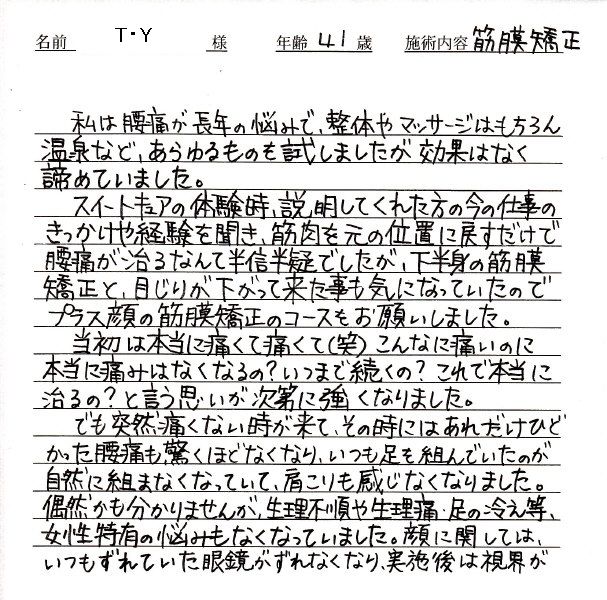 名前 T・Y 様 年齢 41 歳 施術内容 筋膜矯正
私は腰痛が長年の悩みで、整体やマッサージはもちろん
温泉など、あらゆるものを試しましたが効果はなく
諦めていました。
スイートキュアの体験時、説明してくれた方の今の仕事の
きっかけや経験を聞き、筋肉を元の位置に戻すだけで
腰痛が治るなんて半信半疑でしたが、下半身の筋膜
矯正と、目じりが下がって来た事も気になっていたので
プラス顔の筋膜矯正のコースもお願いしました。
当初は本当に痛くて痛くて(笑)こんなに痛いのに
本当に痛みはなくなるの?いつまで続くの?これで本当に
治るの?と言う思いが次第に強くなりました。
でも突然痛くない時が来て、その時にはあれだけひど
かった腰痛も驚くほどなくなり、いつも足を組んでいたのが
自然に組まなくなっていて、肩こりも感じなくなりました。
偶然かも分かりませんが、生理不順や生理痛・足の冷え等、
女性特有の悩みもなくなっていました。顔に関しては、
いつもずれていた眼鏡がずれなくなり、実施後は視界が